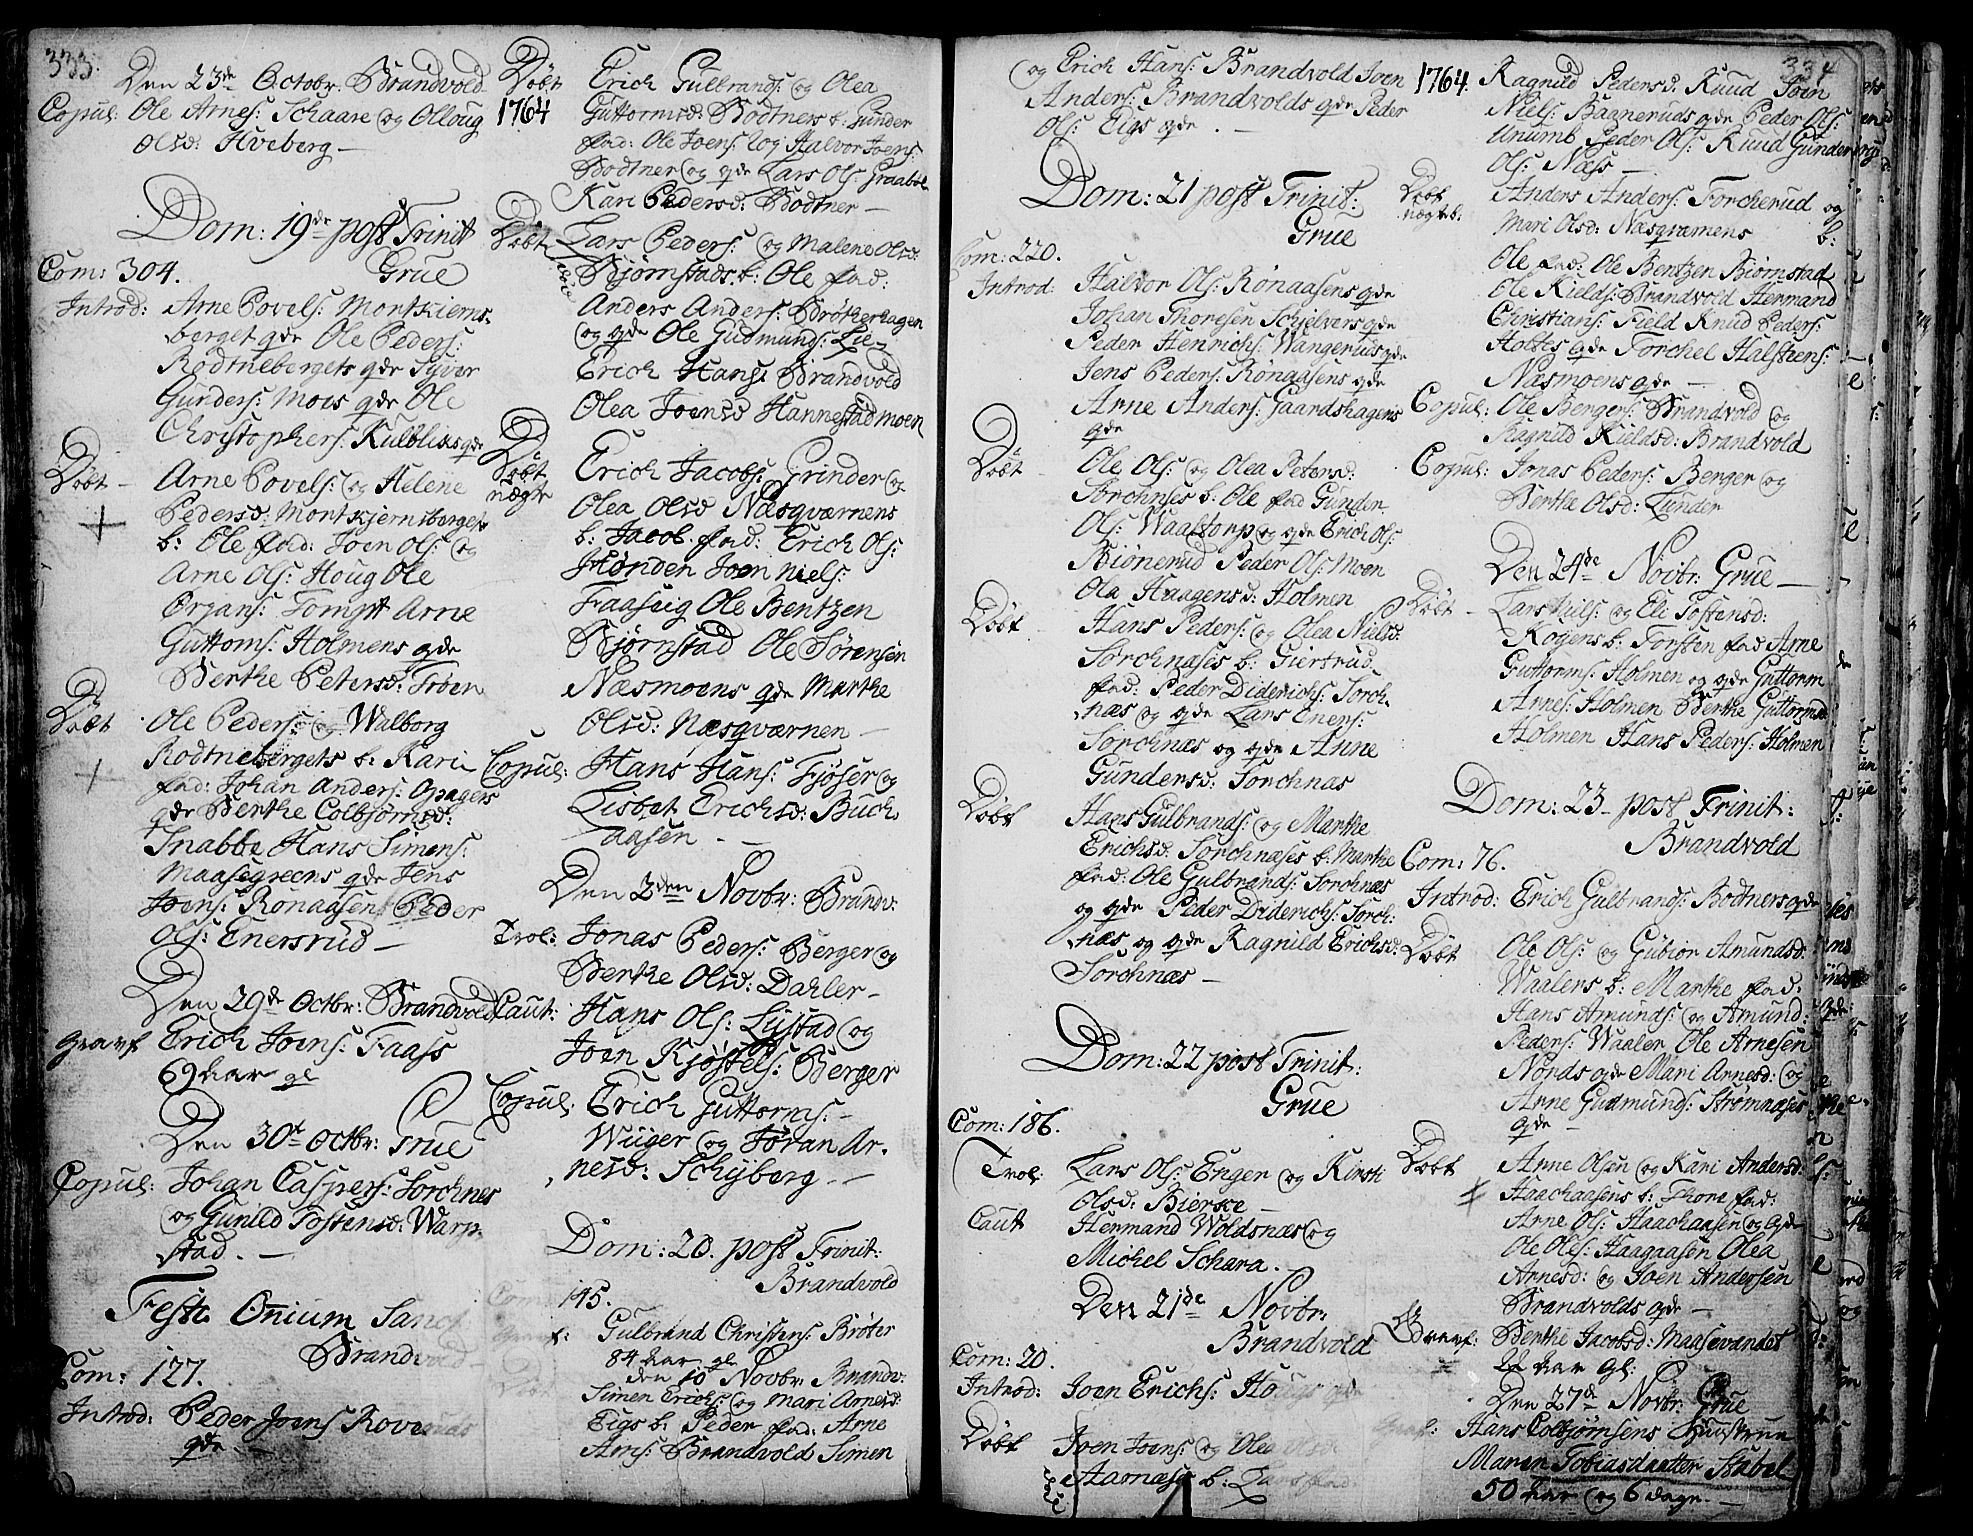 333.
Den 23de Octobr: Brandvold
Copul: Ole Arnes: Schaare og Olloug
Olsd: Hveberg —
Dom: 19de post Trinit
Grue
Com: 304.
Introd: Arne Povels: Mortkierns-
berget qde Ole Peders:
Rodtnebergets qde Syver
Gunders: Moes qde Ole
Christophers: Kulblias qde
Döbt — Arne Povels: og Helene
Pedersd: Mortkjernsberget
b: Ole fad: Joen Ols: og
Arne Ols: Houg Ole
Örjans: Tompt Arne
Guttorms: Holmens qde
Berthe Petersd: Fröen
Döbt Ole Peders: og Walborg
Rodtnebergets b: Kari
fad: Johan Anders: Opagers
qde Berthe Colbjörnsd:
Snabbe Hans Simens:
Maasegreens qde Jens
Joens: Rönaasen Peder
Ols: Enersrud —
Den 29de Octbr: Brandvold
Gravf Erich Joens: Faass
69 aar gl
Den 30te Octbr: Grue
Copul: Johan Caspers: Sorchnes
og Gunild Tostensd: Warp-
stad. —
Festo Omnium Sanct
Brandvold
Com: 127.
Introd: Peder Joens Rove
qde —
Döbt Erich Gulbrands: og Olea
1764 Guttormsd: Bodtners b: Gunder
fad: Ole Joens: og Halvor Joens:
Bodtner og qde Lars Ols: Graabol
Kari Pedersd: Bodtner —
Döbt Lars Peders: og Malene Olsd:
Bjørnstads b: Ole fad:
Anders Anders: Bröterhagen
og qde Ole Gudmunds: Lie
Erich Hans: Brandvold
Olea Joensd Hannestadmoen
Döbt Erich Jacobs: Grinder og
nægte Olea Olsd Næsqværnens
b: Jacob fad: Erich Ols:
Hönden Joen Niels:
Faaseig Ole Bentzen
Bjørnstad Ole Sörensen
Næsmoens qde Marthe
Olsd: Næsqværnen —
Copul: Hans Hans: Fjöser og
Lisbet Erichsd: Buch
aasen —
Den 3den Novbr: Brandv:
Trol: Jonas Peders: Berger og
Berthe Olsd: Dahler —
Caut: Hans Ols: Lystad og
Joen Kjöstels: Berger
Copul: Erich Guttorms:
Wüger og Jöran Ar-
nesd: Schyberg —
Dom: 20. post Trinit:
Brandvold
Com: 145.
Gravf: Gulbrand Christens: Bröter
84 aar gl
den 10 Novbr: Brandv:
Simen Erichs: og Mari Arnesd:
Eigs b: Peder fad: Arne
Arns: Brandvold Simen
og Erich Hans: Brandvold Joen
Anders: Brandvolds qde Peder
Ols: Eigs qde . —
Dom: 21 post Trinit:
Grue
Com: 220.
Introd: Halvor Ols: Rönaasens qde
Johan Thoresen Schjelvers qde
Peder Henrichs: Wangeruds qde
Jens Peders: Rönaasens qde
Arne Anders: Gaardshagens
qde
Döbt Ole Ols: og Olea Petersd:
Sorchnses b: Ole fad Gunder
Ols: Waaltorp og qde Erich Ols:
Biönerud Peder Ols: Moen
Ola Haagensd: Holmen
Döbt Hans Peders: og Olea Nielsd:
Sorchnæses b: Giertrud
fad: Peder Diderichs: Sorch-
næs og qde Lars Eners:
Sorchnæs og qde Anne
Gundersd: Sorchnæs
Döbt Hans Gulbrands: og Marthe
Erichsd: Sorchnæses b: Marthe
fad: Ole Gulbrands: Sorchnæs
og qde Peder Diderichs: Sorch-
næs og qde Ragnild Erichsd:
Sorchnæs —
Dom: 22 post Trinit:
Grue
Com: 186.
Trol Lars Ols: Enger og Kirsti
Olsd: Bierke —
Caut Hermand Woldsnæs og
Michel Schara .
Den 21de Novbr:
Brandvold
Com: 20.
Introd: Joen Erichs: Hougs qde
Döbt Joen Joens: og Olea
Aarnæse b: Lars fad:
334
1764. Ragnild Pedersd: Ruud Joen
Niels: Baaneruds qde Peder Ols:
Unumb Peder Ols: Ruud Gunder
Ols: Næss —
Döbt Anders Anders: Forcherud og
nægteb: Mari Olsd: Næsqvamens b:
Ole fad: Ole Bentzen Biørnstad
Ole Kields: Brandvold Hermand
Christians: Field Knud Peders:
Holtes qde Torchel Halstens:
Næsmoens qde —
Copul: Ole Bergers: Brandvold og
Ragnild Kieldsd: Brandvold
Copul: Jonas Peders: Berger og
Berthe Olsd: Lunder
Den 24de Novbr: Grue —
Döbt Lars Niels: og Eli Tostensd:
Kogens b: Torsten fad Arne
Guttorms: Holmen og qde Guttorm
Arnes: Holmen Berthe Guttormsd
Holmen Hans Peders: Holmen
Dom: 23 post Trinit:
Brandvold
Com: 76.
Introd: Erich Gulbrands: Bodtners qde
Döbt Ole Ols: og Gubior Amundsd:
Waalers b: Marthe fad:
Hans Amunds: og Amund:
Peders: Waaler Ole Arnesen
Nords qde Mari Arnesd: og
Arne Gudmunds: Strömnæses
qde —
Döbt Arne Olsen og Kari Andersd:
Haachaasens b: Thore fad:
Arne Ols: Haachaasen og qde
Ole Oles: Haagaasen Olea
Arnesd: og Joen Andersen
Brandvolds qde —
Gravf: Berthe Jacobsd: Maasevandet
22 aar gl:
Den 27de Novbr: Grue
Graf: Hans Colbjørnsens Huustrue
Maren Tobiasdaatter Stabel
50 aar og 6 dage. —